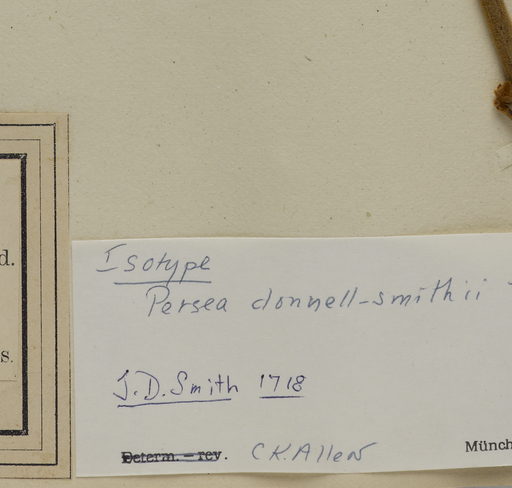 d.
s.
Isotype
Persea donnell-smithii
J.D. Smith 1718
Determ. – rev. C.K. Allen
Münch